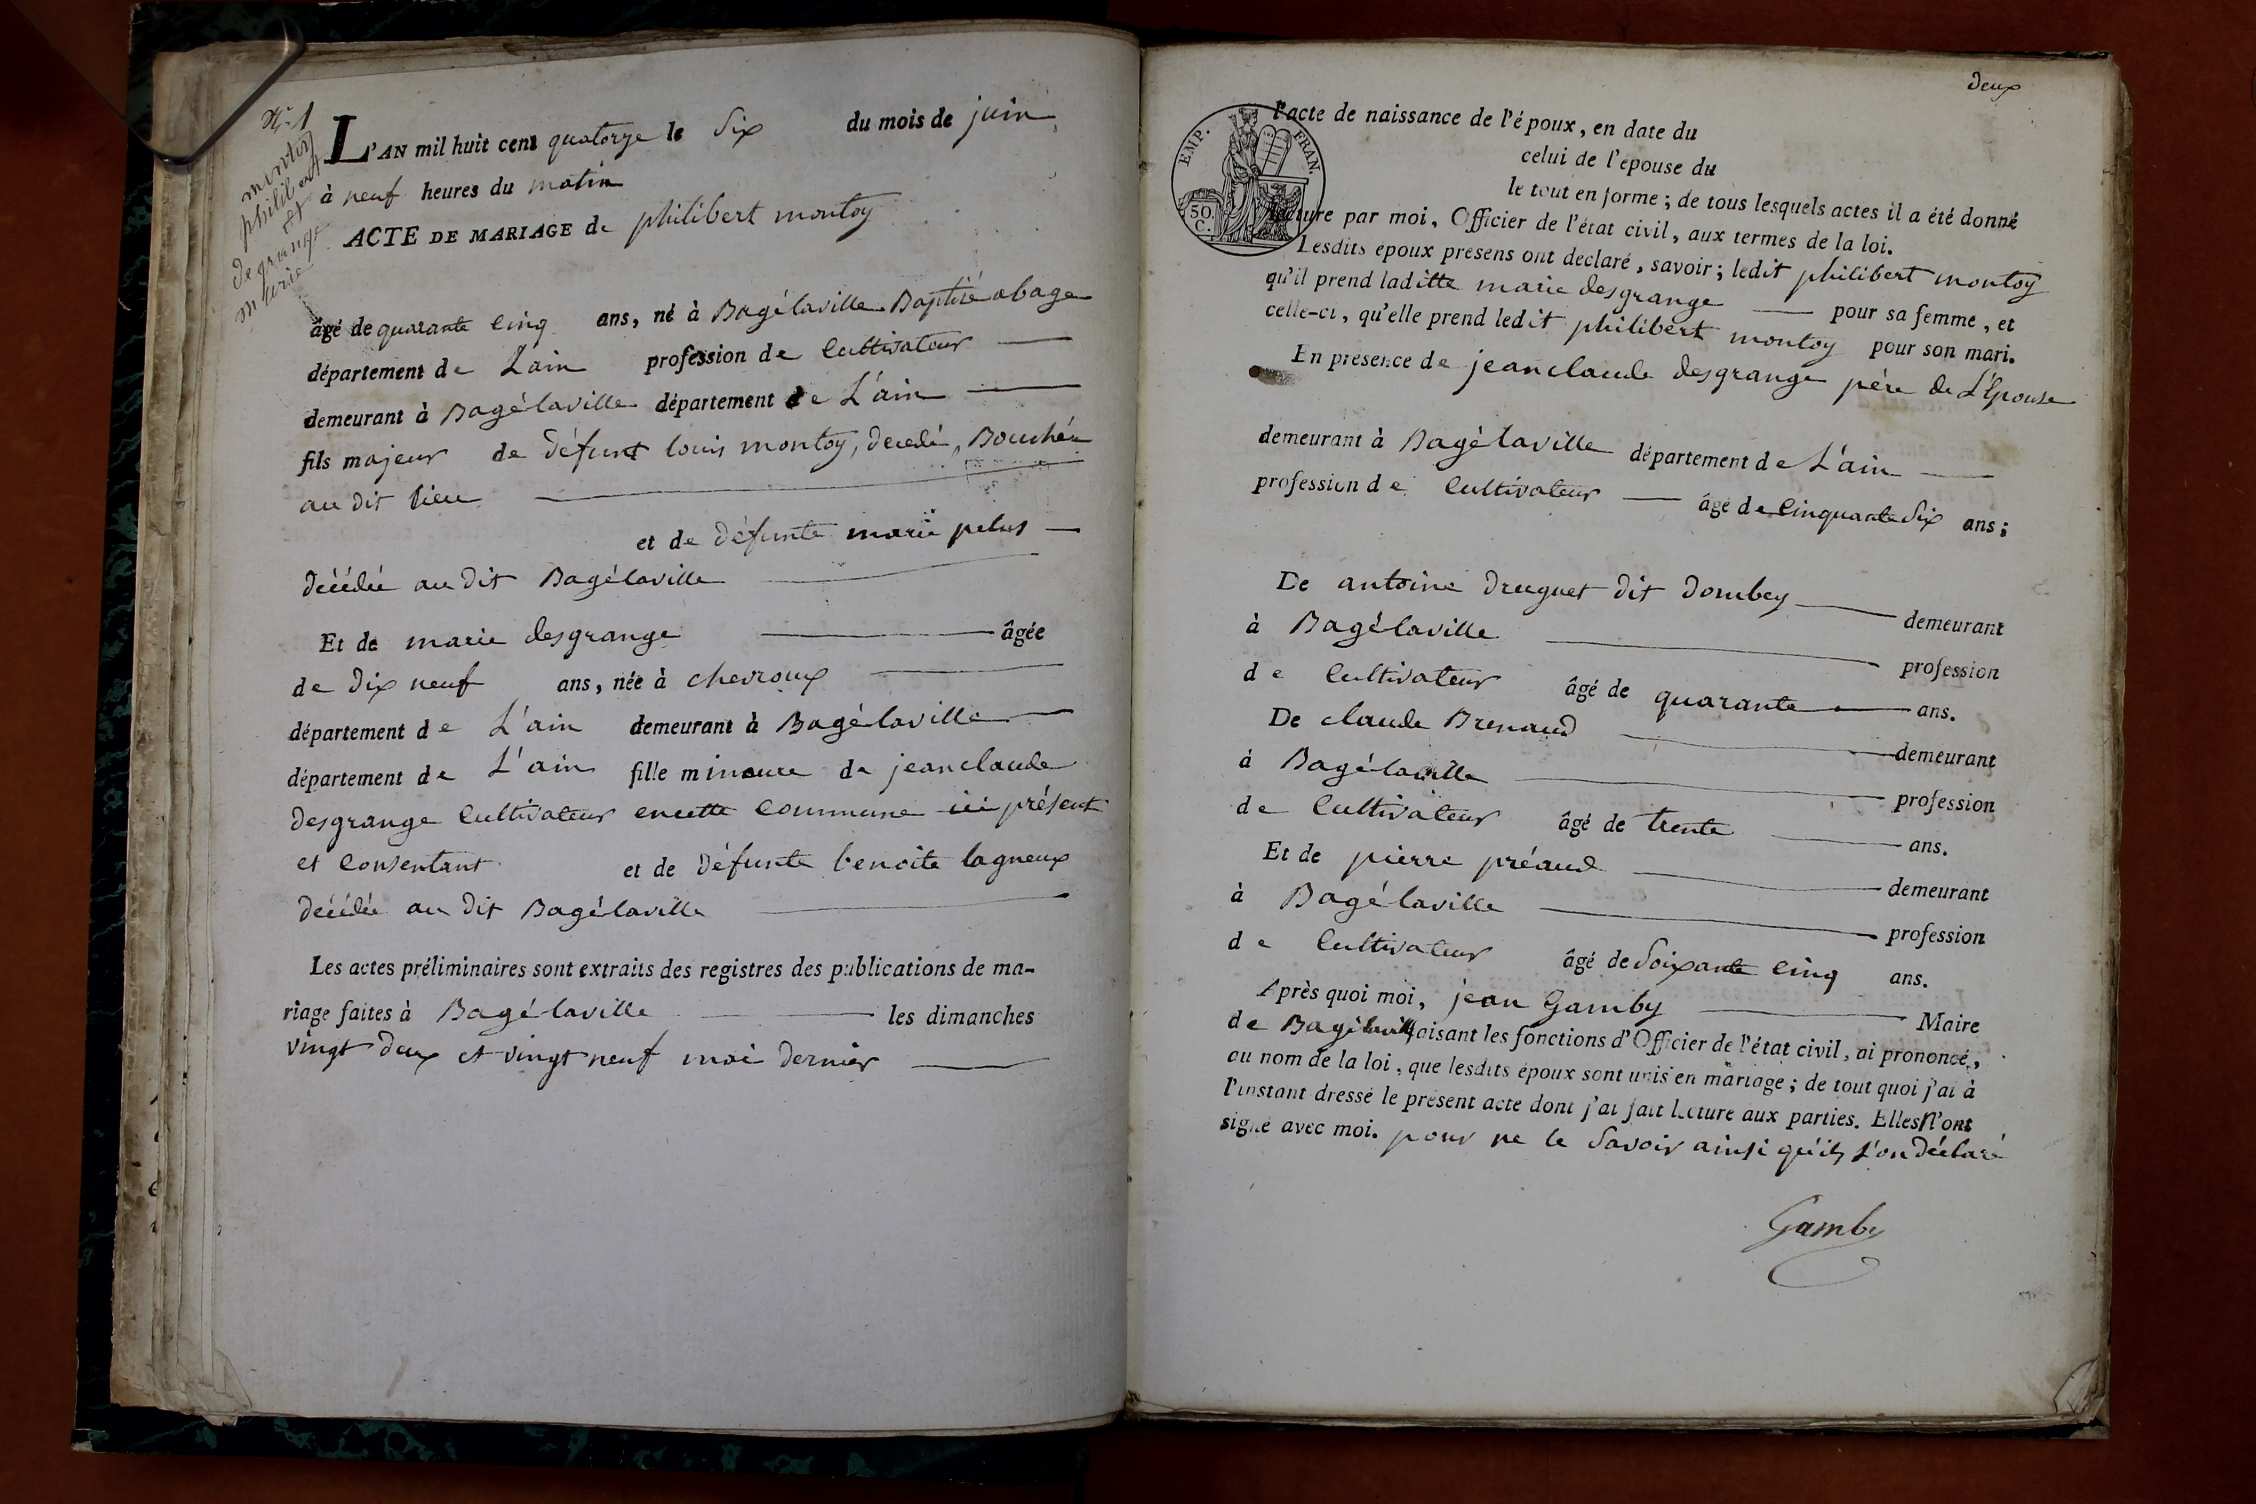 N.º 1
montoy
philibert
et
degrange
marie
L'AN mil huit cent quatorze le six du mois de juin
à neuf heures du matin
ACTE DE MARIAGE de philibert montoy
âgé de quarante cinq ans, né à Bagélaville Baptisé abage
département de L'ain profession de Cultivateur
demeurant à Bagélaville département de L'ain
fils majeur de défunt louis montoy, decedé, Bouchér
au dit lieu
et de défunte marie pelus
décédée au dit Bagélaville
Et de marie desgrange âgée
de dix neuf ans, née à chevroux
département de L'ain demeurant à Bagélaville
département de L'ain fille mineure de jeanclaude
desgrange Cultivateur encette Commune ici présent
et Consentant et de défunte benoite lagneux
décédée au dit Bagélaville
Les actes préliminaires sont extraits des registres des publications de ma-
riage faites à Bagélaville les dimanches
vingt deux et vingt neuf mai dernier
deux
EMP. FRAN.
50.
C.
l'acte de naissance de l'époux, en date du
celui de l'epouse du
le tout en forme; de tous lesquels actes il a été donné
lecture par moi, Officier de l'état civil, aux termes de la loi.
Lesdits époux presens ont declaré, savoir; ledit philibert montoy
qu'il prend laditte marie desgrange pour sa femme, et
celle-ci, qu'elle prend ledit philibert montoy pour son mari.
En présence de jeanclaude desgrange père de L'Epouse
demeurant à Bagélaville département de L'ain
profession de Cultivateur âgé de Cinquante six ans;
De antoine druguet dit dombey demeurant
à Bagélaville profession
de Cultivateur âgé de quarante ans.
De claude Brenaud demeurant
à Bagélaville profession
de Cultivateur âgé de trente ans.
Et de pierre préaud demeurant
à Bagélaville profession
de Cultivateur âgé de soixante cinq ans.
Après quoi moi, jean Gamby Maire
de Bagélaville faisant les fonctions d'Officier de l'état civil, ai prononcé,
au nom de la loi, que lesdits époux sont unis en mariage; de tout quoi j'ai à
l'instant dressé le présent acte dont j'ai fait lecture aux parties. Elles n'ont
signé avec moi. pour ne le savoir ainsi qu'ils L'on déclaré
Gamby